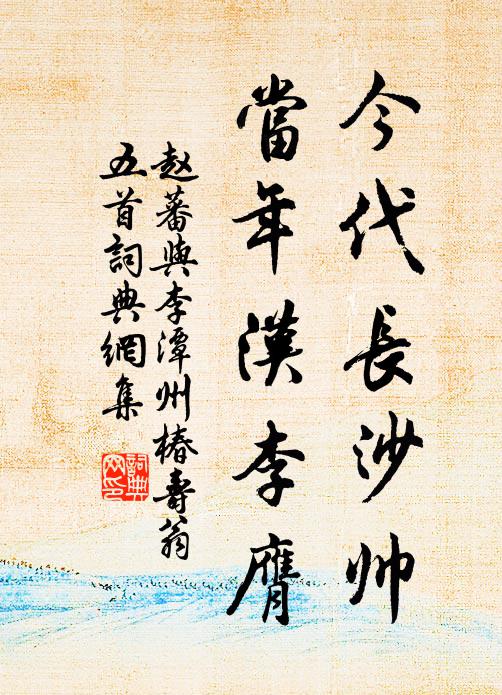 今代長沙帅
當年漢李膺
赵蕃與李潭州椿壽翁
五首詞典網集
詞典
网印